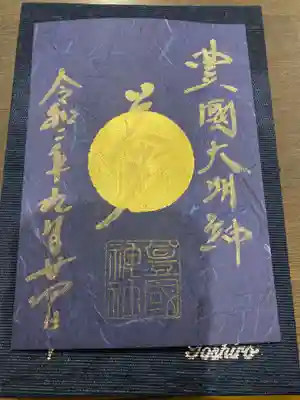 豊國大明神
豊國
神社
令和二年九月廿四日
Toshiro